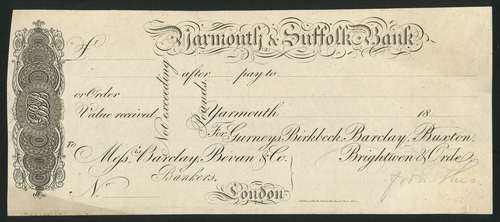 Yarmouth & Suffolk Bank
£
after pay to
Not exceeding Pounds.
or Order
Value received
Yarmouth 18
For Gurneys, Birkbeck, Barclay, Buxton,
To Messrs Barclay, Bevan & Co. Brightwen & Orde
Bankers.
No London